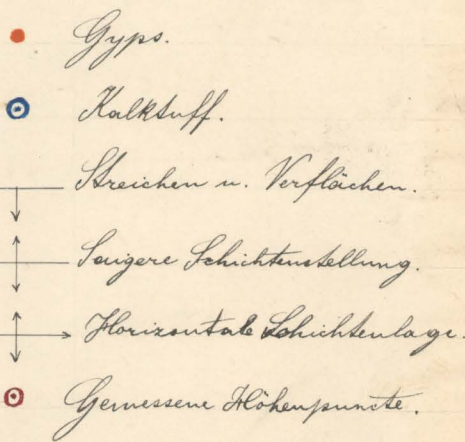 Gyps.
Kalktuff.
Streichen u. Verflächen.
Saigere Schichtenstellung.
Horizontale Schichtenlage.
Gemessene Höhenpuncte.